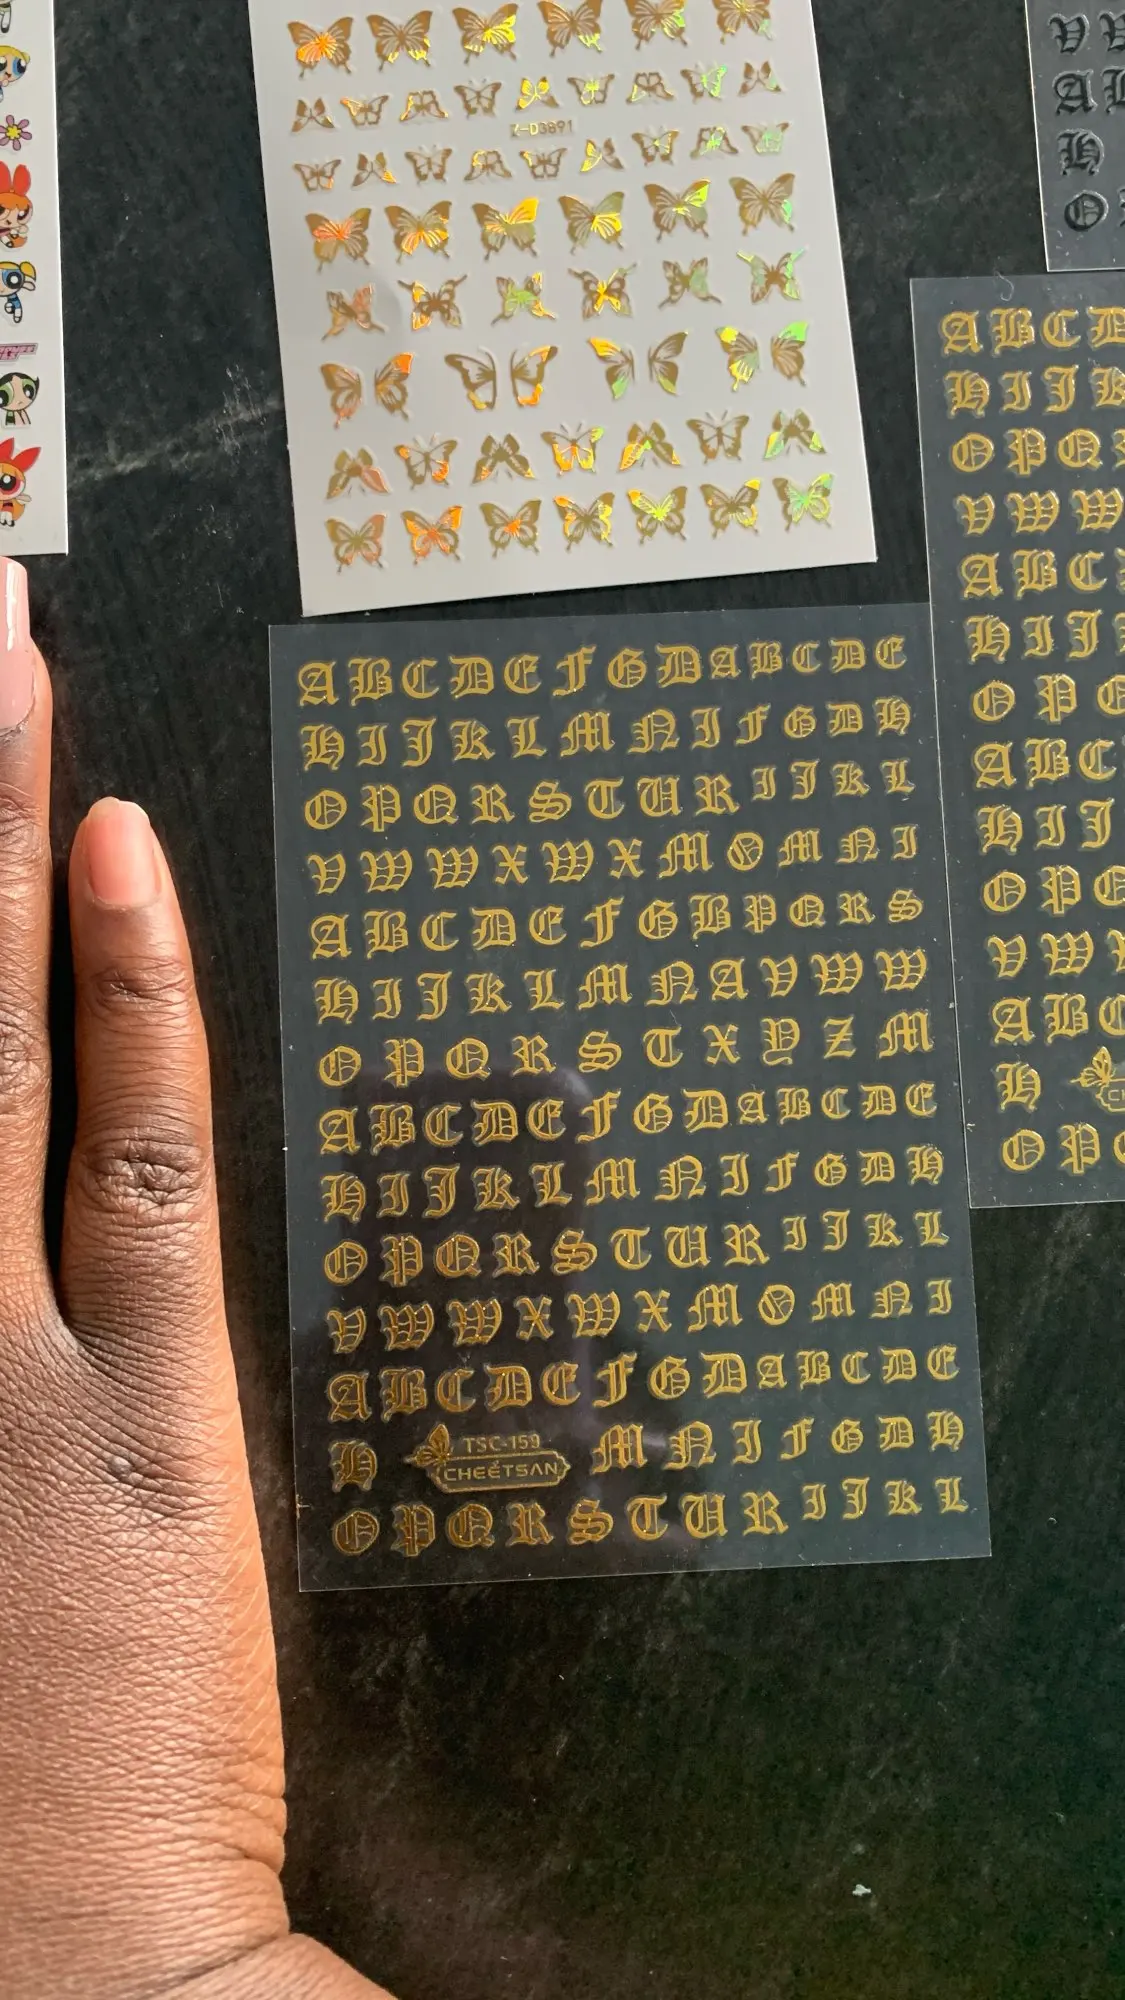 Z-D3891
A B C D E F G D A B C D E
H I J K L M N I F G D H
O P Q R S T U R I J K L
V W W X W X M M N I
A B C D E F G B P Q R S
H I J K L M N A V W W
O P Q R S T X Y Z M
A B C D E F G D A B C D E
H I J K L M N I F G D H
O P Q R S T U R I J K L
V W W X W X M M N I
A B C D E F G D A B C D E
H TSC-159 M N I F G D H
CHEETSAN
O P Q R S T U R I J K L
V W
A
H
O
A B C D
H I J K
O P Q
V W W
A B C
H I J
O P Q
A B C
H I J
O P Q
V W W
A B C
H
O P Q